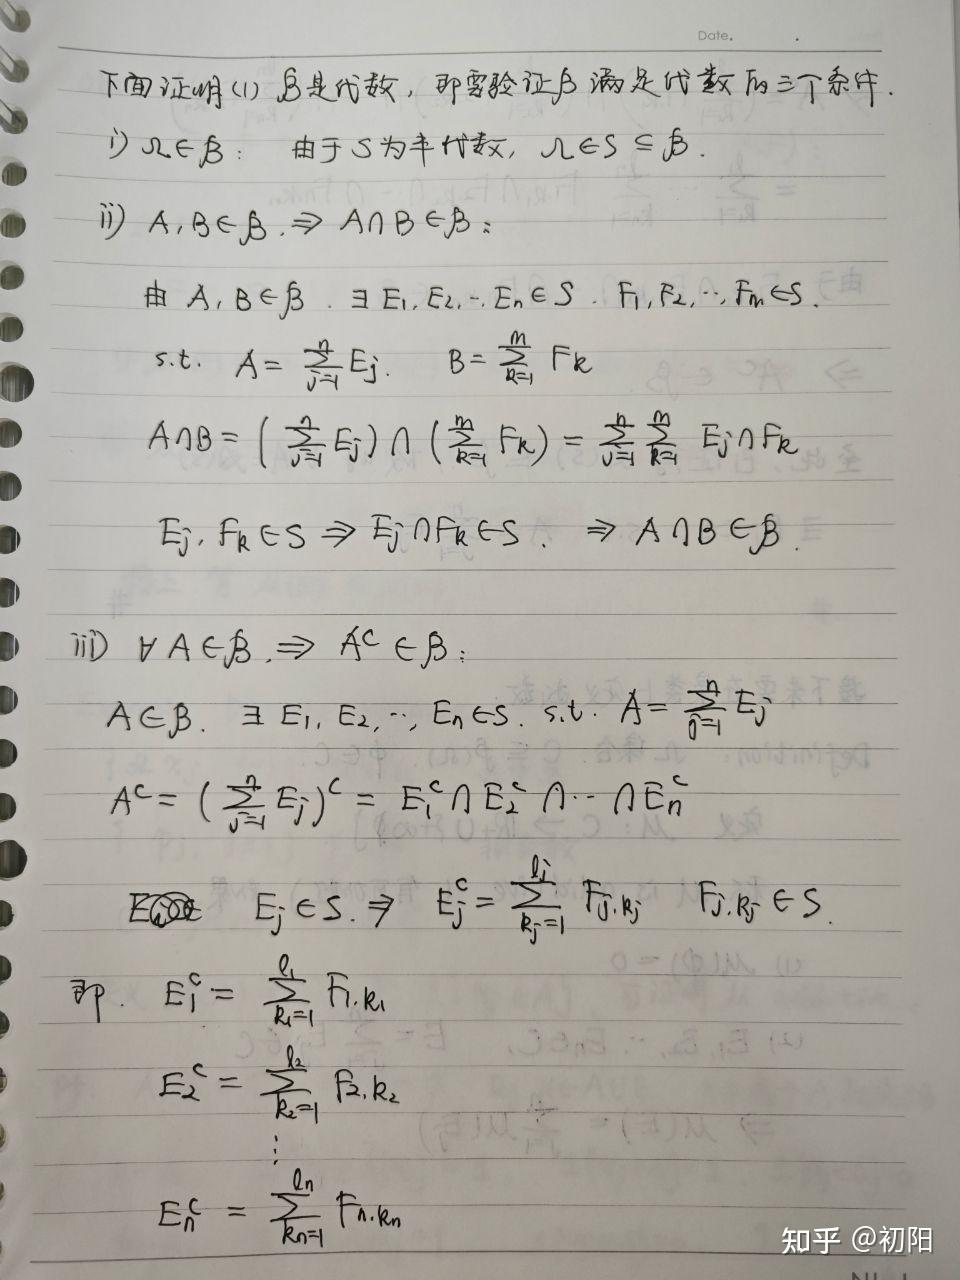 Date.
下面证明(1) β是代数, 即需验证β满足代数的三个条件.
i) Ω∈β: 由于S为半代数, Ω∈S⊆β.
ii) A,B∈β, ⇒ A∩B∈β:
由 A,B∈β. ∃ E₁,E₂,…Eₙ∈S. F₁,F₂,…,Fₘ∈S.
s.t. A=∑_{j=1}^{n} E_j. B=∑_{k=1}^{m} F_k
A∩B=(∑_{j=1}^{n} E_j)∩(∑_{k=1}^{m} F_k)=∑_{j=1}^{n}∑_{k=1}^{m} E_j∩F_k
E_j, F_k∈S ⇒ E_j∩F_k∈S. ⇒ A∩B∈β.
iii) ∀A∈β, ⇒ A^c∈β:
A∈β. ∃ E₁,E₂,…,Eₙ∈S. s.t. A=∑_{j=1}^{n} E_j
A^c=(∑_{j=1}^{n} E_j)^c=E₁^c∩E₂^c∩…∩Eₙ^c
E_j∈S. ⇒ E_j^c=∑_{k_j=1}^{l_j} F_{j,k_j} F_{j,k_j}∈S.
即. E₁^c=∑_{k₁=1}^{l₁} F_{1,k₁}
E₂^c=∑_{k₂=1}^{l₂} F_{2,k₂}
⋮
Eₙ^c=∑_{kₙ=1}^{lₙ} F_{n,kₙ}
知乎 @初阳